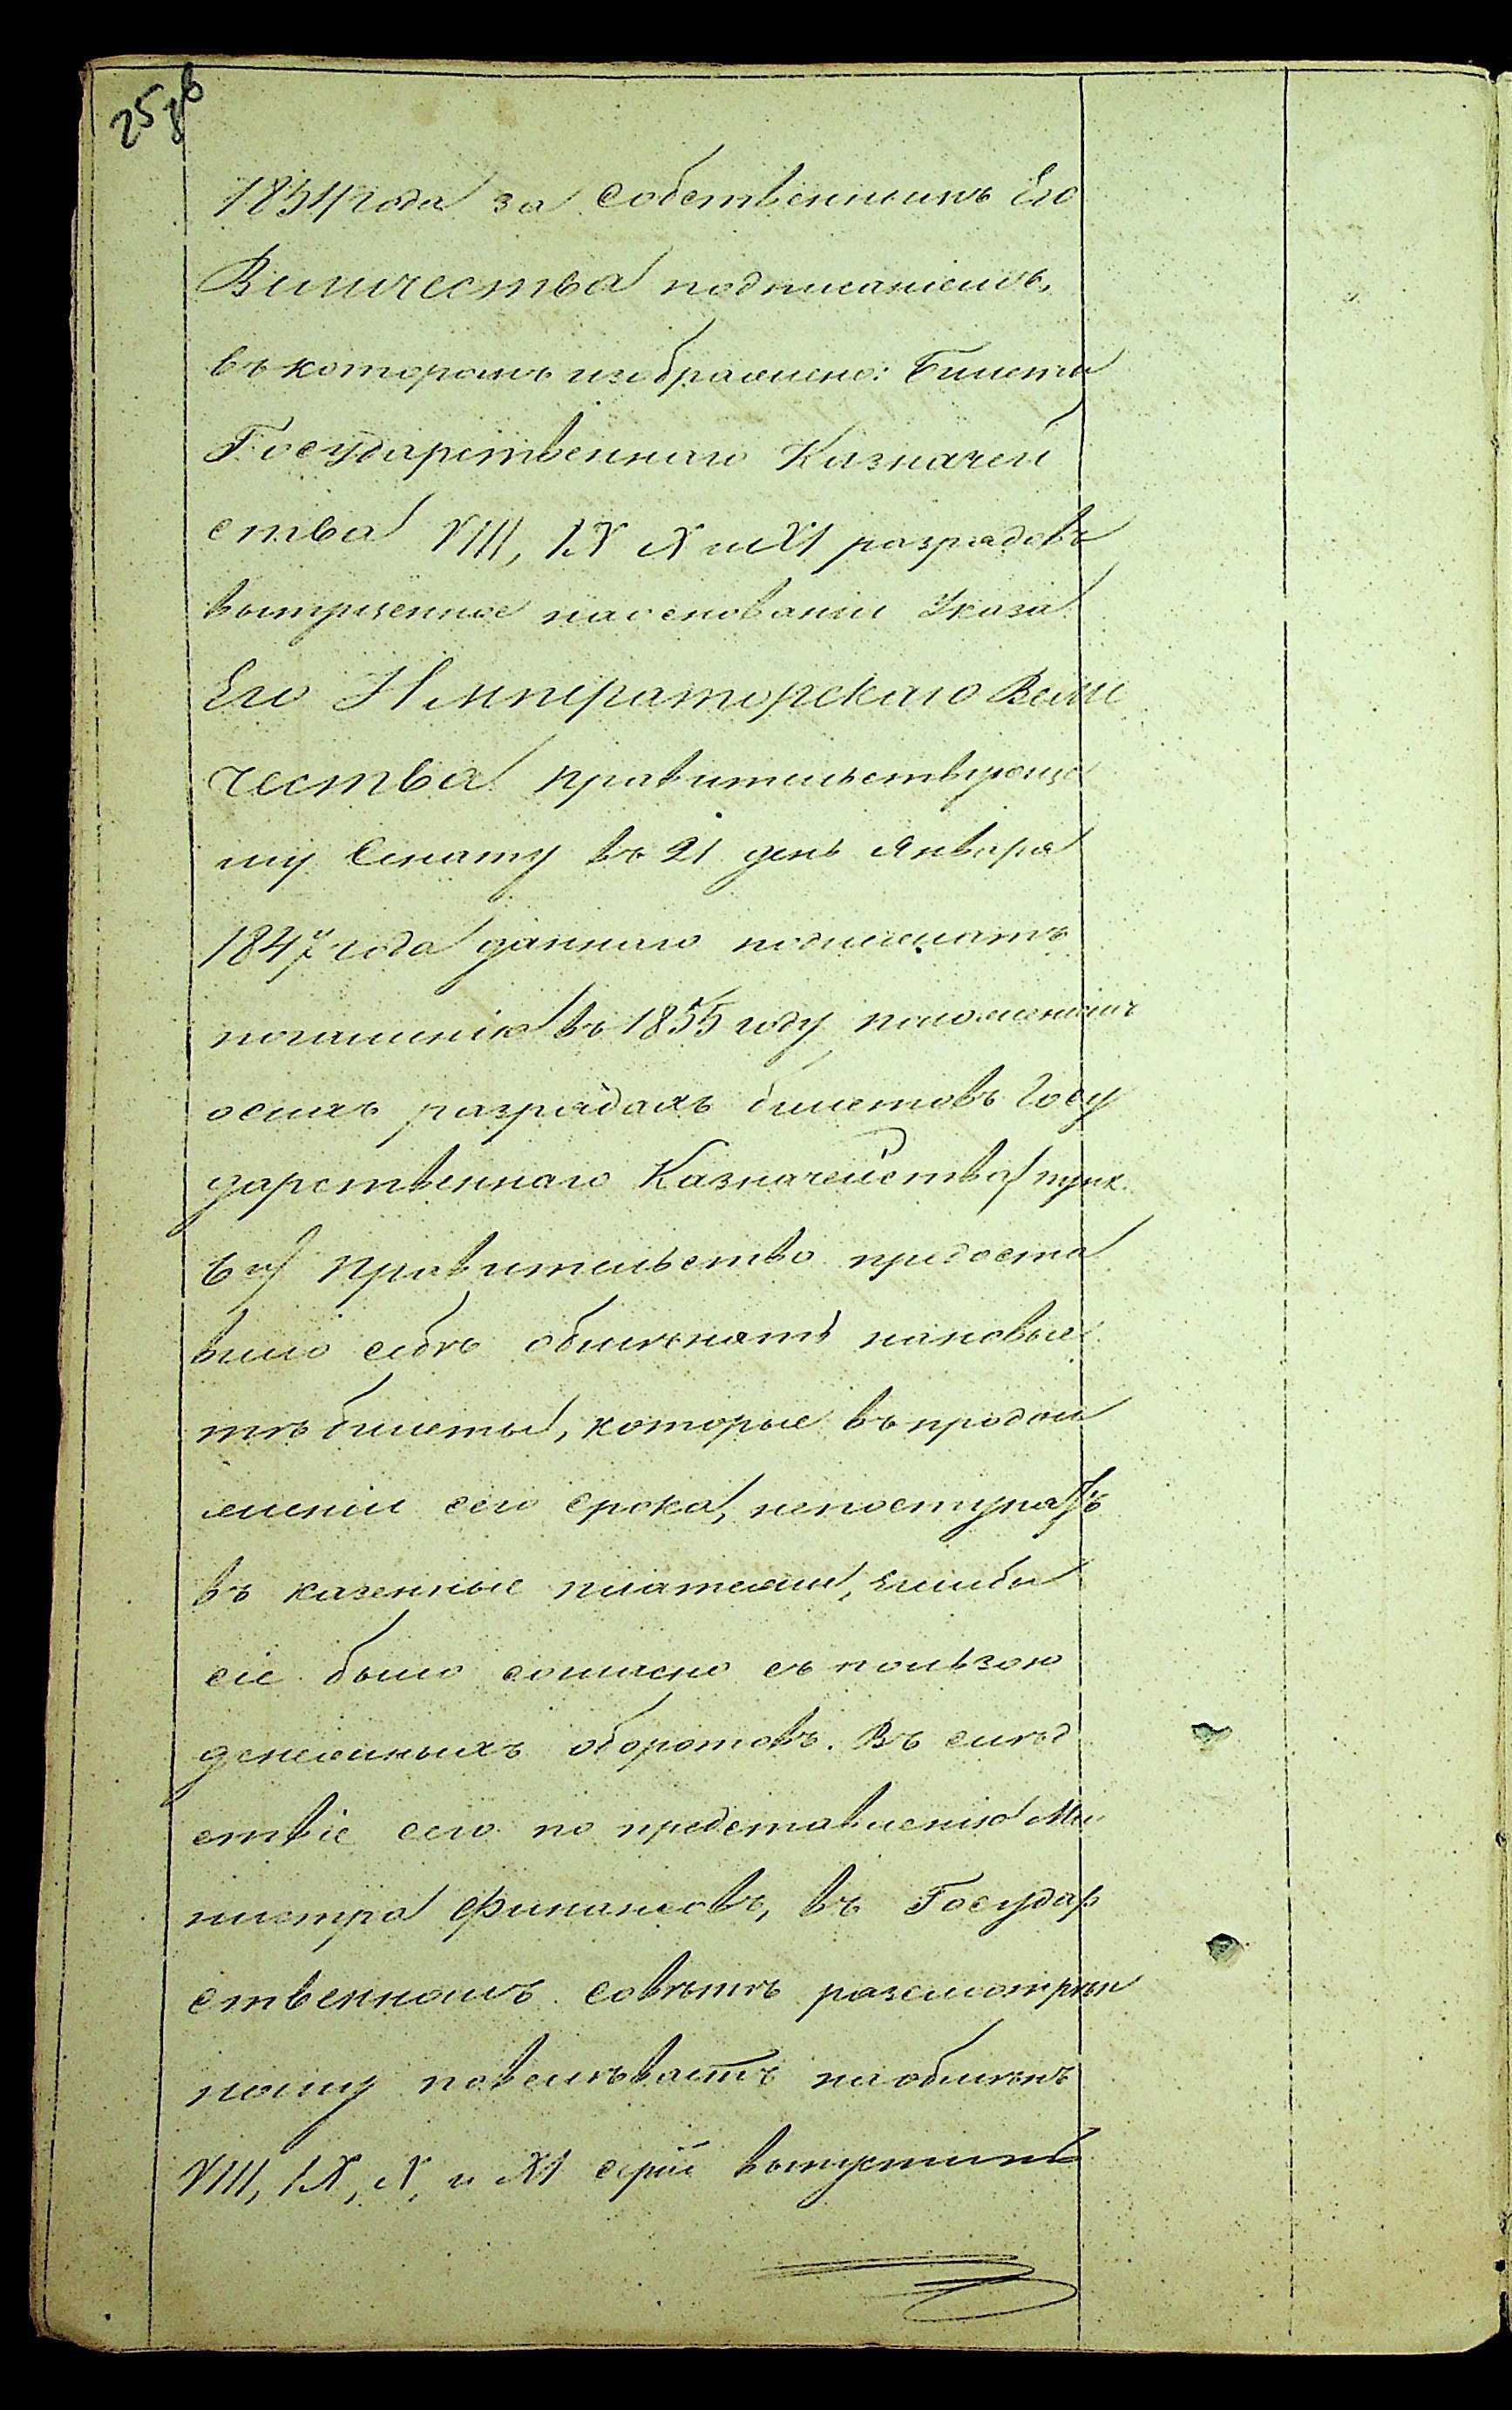 25 об
1854 года за Собственнымъ Его
Величества подписаніемъ,
въ которомъ изображено: Билеты
Государственнаго Казначей
ства VIII, IX X и XI разрядовъ
выпущенные на основаніи Указа
Его Императорскаго Вели
чества Правительствующе
му Сенату въ 21 день Января
1847 года даннаго подлежатъ
погашенію въ 1855 году положеніемъ
о сихъ разрядахъ билетовъ Госу
дарственнаго Казначейства/ пунк.
6й/ Правительство предоста
вило себѣ обмѣнять на новые
тѣ билеты, которые въ продол
женіи сего срока, непоступятъ
въ казенные платежи, Ежелибы
сіе было согласно съ пользою
денежныхъ оборотовъ. Въ слѣд
ствіе сего по представленію Ми
нистра Финансовъ, въ Государ
ственномъ совѣтѣ разсмотрѣн
ному повелѣваетъ на обмѣнъ
VIII, IX, X, и XI серіи выпустить